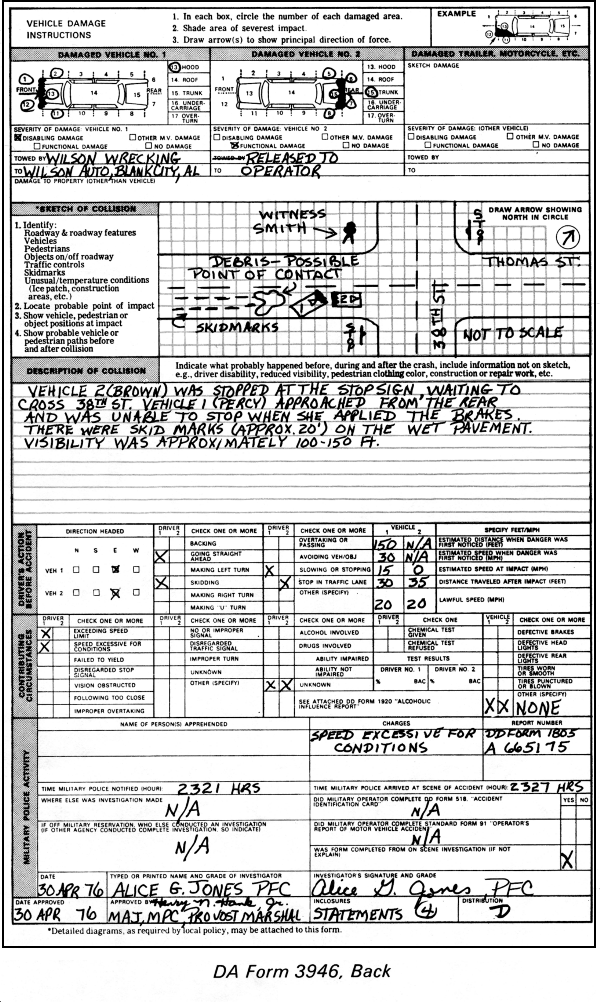 VEHICLE DAMAGE
INSTRUCTIONS
1. In each box, circle the number of each damaged area.
2. Shade area of severest impact.
3. Draw arrow(s) to show principal direction of force.
EXAMPLE
DAMAGED VEHICLE NO. 1
DAMAGED VEHICLE NO. 2
DAMAGED TRAILER, MOTORCYCLE, ETC.
13. HOOD
14. ROOF
15. TRUNK
16. UNDER-CARRIAGE
17. OVER-TURN
FRONT
REAR
13. HOOD
14. ROOF
15. TRUNK
16. UNDER-CARRIAGE
17. OVER-TURN
FRONT
REAR
SKETCH DAMAGE
SEVERITY OF DAMAGE: VEHICLE NO. 1
DISABLING DAMAGE OTHER M.V. DAMAGE
FUNCTIONAL DAMAGE NO DAMAGE
SEVERITY OF DAMAGE: VEHICLE NO 2
DISABLING DAMAGE OTHER M.V. DAMAGE
FUNCTIONAL DAMAGE NO DAMAGE
SEVERITY OF DAMAGE: (OTHER VEHICLE)
DISABLING DAMAGE OTHER M.V. DAMAGE
FUNCTIONAL DAMAGE NO DAMAGE
TOWED BY WILSON WRECKING
TOWED BY RELEASED TO
TOWED BY
TO WILSON AUTO, BLANKCITY, AL
TO OPERATOR
TO
DAMAGE TO PROPERTY (OTHER THAN VEHICLE)
*SKETCH OF COLLISION
1. Identify:
Roadway & roadway features
Vehicles
Pedestrians
Objects on/off roadway
Traffic controls
Skidmarks
Unusual/temperature conditions
(Ice patch, construction
areas, etc.)
2. Locate probable point of impact
3. Show vehicle, pedestrian or
object positions at impact
4. Show probable vehicle or
pedestrian paths before
and after collision
WITNESS
SMITH
STOP
DRAW ARROW SHOWING
NORTH IN CIRCLE
DEBRIS - POSSIBLE
POINT OF CONTACT
THOMAS ST.
SKIDMARKS
STOP
38TH ST
NOT TO SCALE
DESCRIPTION OF COLLISION
Indicate what probably happened before, during and after the crash, include information not on sketch,
e.g., driver disability, reduced visibility, pedestrian clothing color, construction or repair work, etc.
VEHICLE 2 (BROWN) WAS STOPPED AT THE STOP SIGN, WAITING TO
CROSS 38TH ST VEHICLE 1 (PERCY) APPROACHED FROM THE REAR
AND WAS UNABLE TO STOP WHEN SHE APPLIED THE BRAKES.
THERE WERE SKID MARKS (APPROX. 20') ON THE WET PAVEMENT.
VISIBILITY WAS APPROXIMATELY 100-150 FT.
DRIVER'S ACTION BEFORE ACCIDENT
DIRECTION HEADED
N S E W
VEH 1
VEH 2
DRIVER 1 2
CHECK ONE OR MORE
BACKING
X GOING STRAIGHT AHEAD
MAKING LEFT TURN
X SKIDDING
MAKING RIGHT TURN
MAKING "U" TURN
DRIVER 1 2
CHECK ONE OR MORE
OVERTAKING OR PASSING
AVOIDING VEH/OBJ
X SLOWING OR STOPPING
X STOP IN TRAFFIC LANE
OTHER (SPECIFY)
VEHICLE 1 2
SPECIFY FEET/MPH
150 N/A ESTIMATED DISTANCE WHEN DANGER WAS FIRST NOTICED (FEET)
30 N/A ESTIMATED SPEED WHEN DANGER WAS FIRST NOTICED (MPH)
15 0 ESTIMATED SPEED AT IMPACT (MPH)
30 35 DISTANCE TRAVELED AFTER IMPACT (FEET)
20 20 LAWFUL SPEED (MPH)
CONTRIBUTING CIRCUMSTANCES
DRIVER 1 2
CHECK ONE OR MORE
X EXCEEDING SPEED LIMIT
X SPEED EXCESSIVE FOR CONDITIONS
FAILED TO YIELD
DISREGARDED STOP SIGNAL
VISION OBSTRUCTED
FOLLOWING TOO CLOSE
IMPROPER OVERTAKING
DRIVER 1 2
CHECK ONE OR MORE
NO OR IMPROPER SIGNAL
DISREGARDED TRAFFIC SIGNAL
IMPROPER TURN
UNKNOWN
OTHER (SPECIFY)
DRIVER 1 2
CHECK ONE OR MORE
ALCOHOL INVOLVED
DRUGS INVOLVED
ABILITY IMPAIRED
ABILITY NOT IMPAIRED
X X UNKNOWN
SEE ATTACHED DD FORM 1920 "ALCOHOLIC
INFLUENCE REPORT"
DRIVER 1 2
CHECK ONE
CHEMICAL TEST GIVEN
CHEMICAL TEST REFUSED
TEST RESULTS
DRIVER NO. 1 DRIVER NO. 2
% BAC % BAC
VEHICLE 1 2
CHECK ONE OR MORE
DEFECTIVE BRAKES
DEFECTIVE HEAD LIGHTS
DEFECTIVE REAR LIGHTS
TIRES WORN OR SMOOTH
TIRES PUNCTURED OR BLOWN
OTHER (SPECIFY)
X X NONE
MILITARY POLICE ACTIVITY
NAME OF PERSON(S) APPREHENDED
CHARGES
REPORT NUMBER
SPEED EXCESSIVE FOR
CONDITIONS
DD FORM 1805
A 665175
TIME MILITARY POLICE NOTIFIED (HOUR) 2321 HRS
TIME MILITARY POLICE ARRIVED AT SCENE OF ACCIDENT (HOUR) 2327 HRS
WHERE ELSE WAS INVESTIGATION MADE
N/A
DID MILITARY OPERATOR COMPLETE DD FORM 518, "ACCIDENT
IDENTIFICATION CARD"
N/A
YES NO
IF OFF MILITARY RESERVATION, WHO ELSE CONDUCTED AN INVESTIGATION
(IF OTHER AGENCY CONDUCTED COMPLETE INVESTIGATION, SO INDICATE)
N/A
DID MILITARY OPERATOR COMPLETE STANDARD FORM 91 "OPERATOR'S
REPORT OF MOTOR VEHICLE ACCIDENT
N/A
WAS FORM COMPLETED FROM ON SCENE INVESTIGATION (IF NOT
EXPLAIN)
X
DATE
30 APR 76
TYPED OR PRINTED NAME AND GRADE OF INVESTIGATOR
ALICE G. JONES PFC
INVESTIGATOR'S SIGNATURE AND GRADE
Alice G. Jones, PFC
DATE APPROVED
30 APR 76
APPROVED BY Henry N. Hank Jr.
MAJ, MPC, PROVOST MARSHAL
INCLOSURES
STATEMENTS (4)
DISTRIBUTION
D
*Detailed diagrams, as required by local policy, may be attached to this form.
DA Form 3946, Back